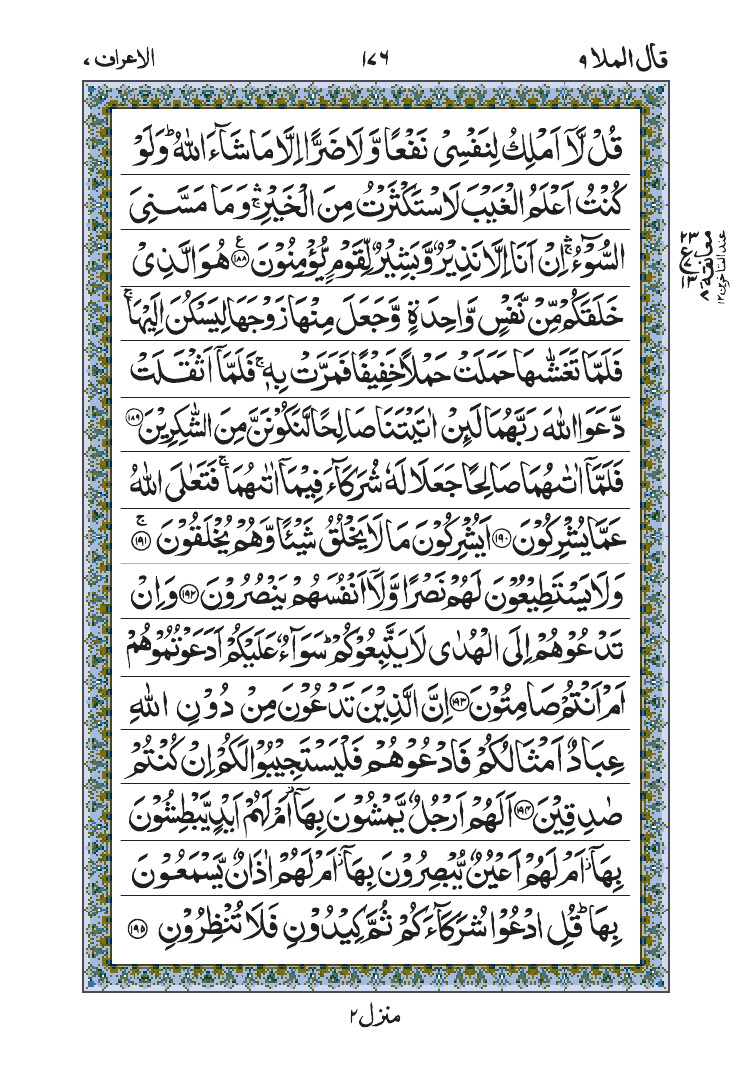 قال الملا ٩
١٧٦
الاعراف ٧
قُلْ لَّاۤ اَمْلِكُ لِنَفْسِیْ نَفْعًا وَّلَا ضَرًّا اِلَّا مَا شَآءَ اللّٰهُؕ وَلَوْ
كُنْتُ اَعْلَمُ الْغَیْبَ لَاسْتَكْثَرْتُ مِنَ الْخَیْرِۚۖۛ وَمَا مَسَّنِیَ
السُّوْٓءُۚۛ اِنْ اَنَا اِلَّا نَذِیْرٌ وَّبَشِیْرٌ لِّقَوْمٍ یُّؤْمِنُوْنَ۠ ﴿۱۸۸﴾ هُوَ الَّذِیْ
خَلَقَكُمْ مِّنْ نَّفْسٍ وَّاحِدَةٍ وَّجَعَلَ مِنْهَا زَوْجَهَا لِیَسْكُنَ اِلَیْهَاۚ
فَلَمَّا تَغَشّٰىهَا حَمَلَتْ حَمْلًا خَفِیْفًا فَمَرَّتْ بِهٖۚ فَلَمَّاۤ اَثْقَلَتْ
دَّعَوَا اللّٰهَ رَبَّهُمَا لَىِٕنْ اٰتَیْتَنَا صَالِحًا لَّنَكُوْنَنَّ مِنَ الشّٰكِرِیْنَ ﴿۱۸۹﴾
فَلَمَّاۤ اٰتٰىهُمَا صَالِحًا جَعَلَا لَهٗ شُرَكَآءَ فِیْمَاۤ اٰتٰىهُمَاۚ فَتَعٰلَى اللّٰهُ
عَمَّا یُشْرِكُوْنَ ﴿۱۹۰﴾ اَیُشْرِكُوْنَ مَا لَا یَخْلُقُ شَیْـًٔا وَّهُمْ یُخْلَقُوْنَۚ ﴿۱۹۱﴾
وَلَا یَسْتَطِیْعُوْنَ لَهُمْ نَصْرًا وَّلَاۤ اَنْفُسَهُمْ یَنْصُرُوْنَ ﴿۱۹۲﴾ وَاِنْ
تَدْعُوْهُمْ اِلَى الْهُدٰى لَا یَتَّبِعُوْكُمْؕ سَوَآءٌ عَلَیْكُمْ اَدَعَوْتُمُوْهُمْ
اَمْ اَنْتُمْ صَامِتُوْنَ ﴿۱۹۳﴾ اِنَّ الَّذِیْنَ تَدْعُوْنَ مِنْ دُوْنِ اللّٰهِ
عِبَادٌ اَمْثَالُكُمْ فَادْعُوْهُمْ فَلْیَسْتَجِیْبُوْا لَكُمْ اِنْ كُنْتُمْ
صٰدِقِیْنَ ﴿۱۹۴﴾ اَلَهُمْ اَرْجُلٌ یَّمْشُوْنَ بِهَاۤؗ اَمْ لَهُمْ اَیْدٍ یَّبْطِشُوْنَ
بِهَاۤؗ اَمْ لَهُمْ اَعْیُنٌ یُّبْصِرُوْنَ بِهَاۤؗ اَمْ لَهُمْ اٰذَانٌ یَّسْمَعُوْنَ
بِهَاؕ قُلِ ادْعُوْا شُرَكَآءَكُمْ ثُمَّ كِیْدُوْنِ فَلَا تُنْظِرُوْنِ ﴿۱۹۵﴾
معانقة ٨
عند المتأخرين ١٢
منزل ٢